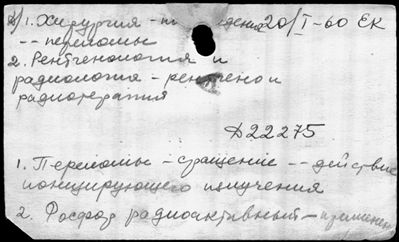 1. Хирургия - 20/I-60 ЕК
-- переломы
2. Рентгенология и
радиология - рентгено и
радиотерапия
Д22275
1. Переломы - сращение -- действие
ионизирующего излучения
2. Фосфор радиоактивный - применен